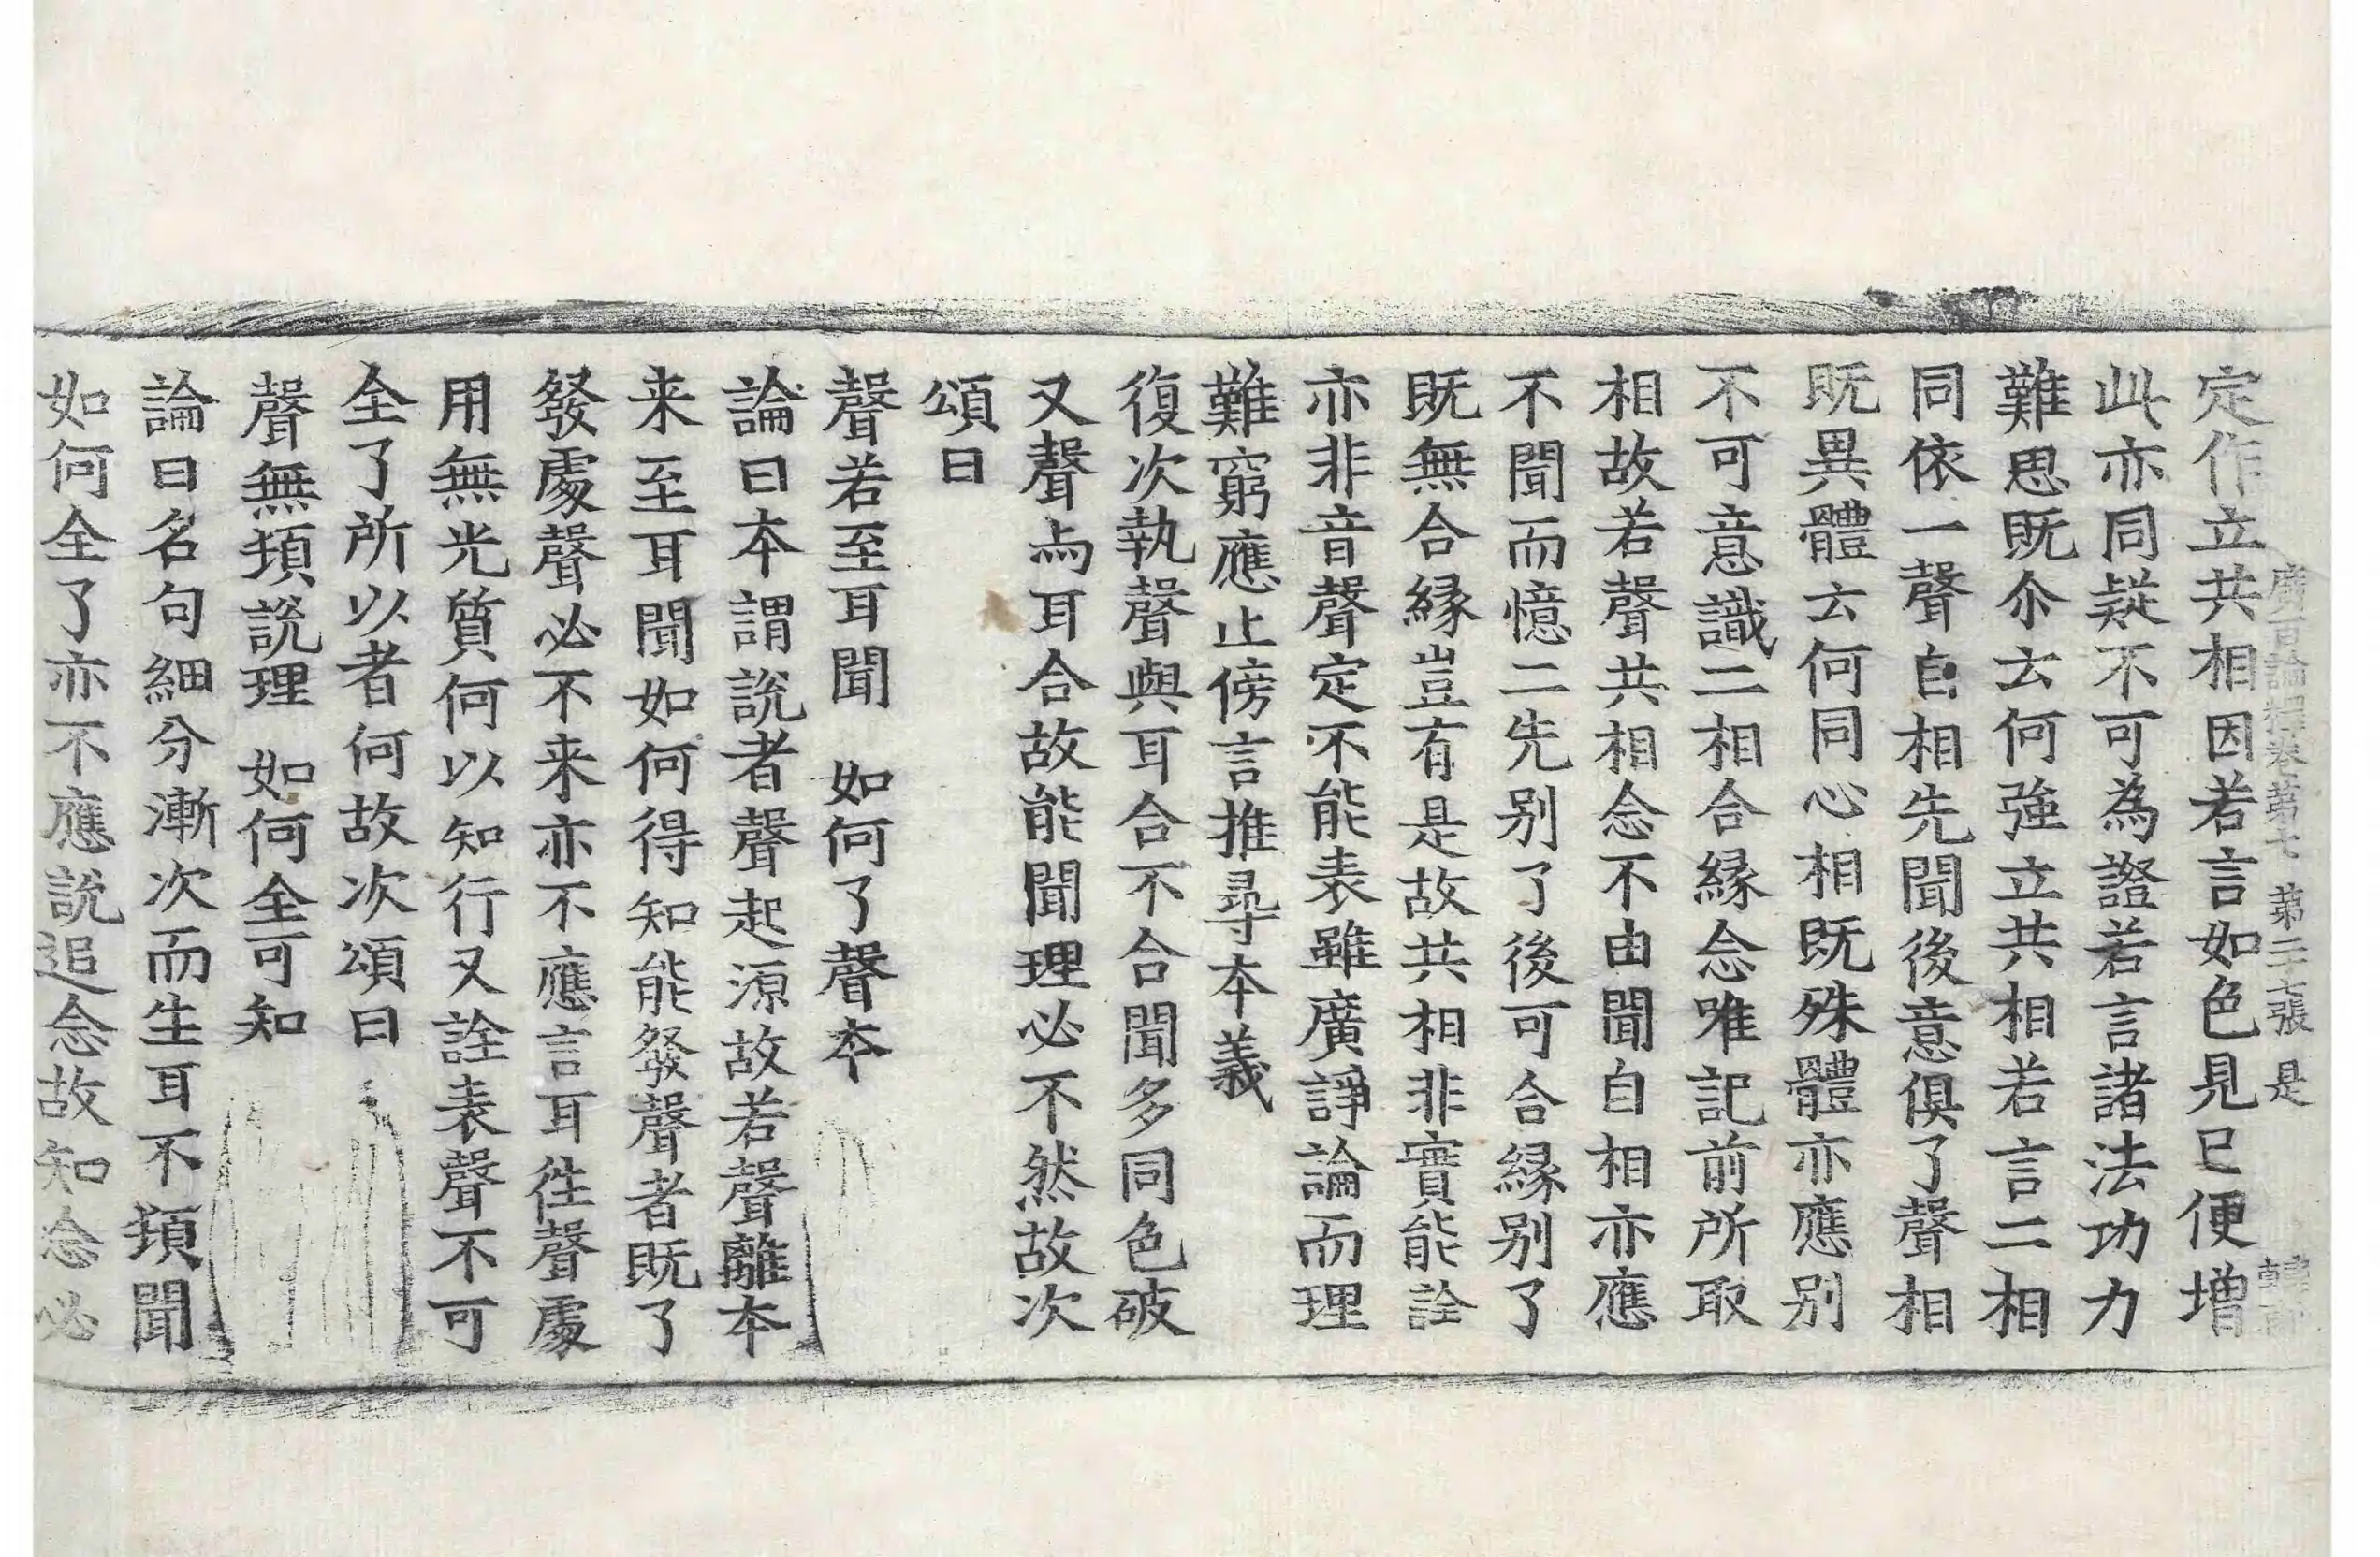 廣百論釋卷第七 第二十七張 是
定作立共相因若言如色見已便增
此亦同疑不可為證若言諸法功力
難思既尒云何強立共相若言二相
同依一聲自相先聞後意俱了聲相
既異體云何同心相既殊體亦應别
不可意識二相合緣念唯記前所取
相故若聲共相念不由聞自相亦應
不聞而憶二先别了後可合緣别了
既無合緣豈有是故共相非實能詮
亦非音聲定不能表雖廣諍論而理
難窮應止傍言推尋本義
復次執聲與耳合不合聞多同色破
又聲為耳合故能聞理必不然故次
頌曰
聲若至耳聞 如何了聲本
論曰本謂說者聲起源故若聲離本
来至耳聞如何得知能發聲者既了
發處聲必不来亦不應言耳徃聲處
用無光質何以知行又詮表聲不可
全了所以者何故次頌曰
聲無頓說理 如何全可知
論曰名句細分漸次而生耳不頓聞
如何全了亦不應說追念故知念必